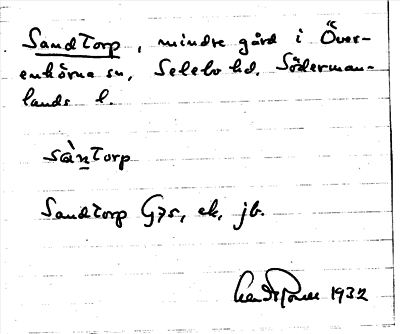 Sandtorp, mindre gård i Över-
enhörna sn, Selebo hd, Söderman-
lands l.
sàntorp
Sandtorp G75, ek, jb.
1932